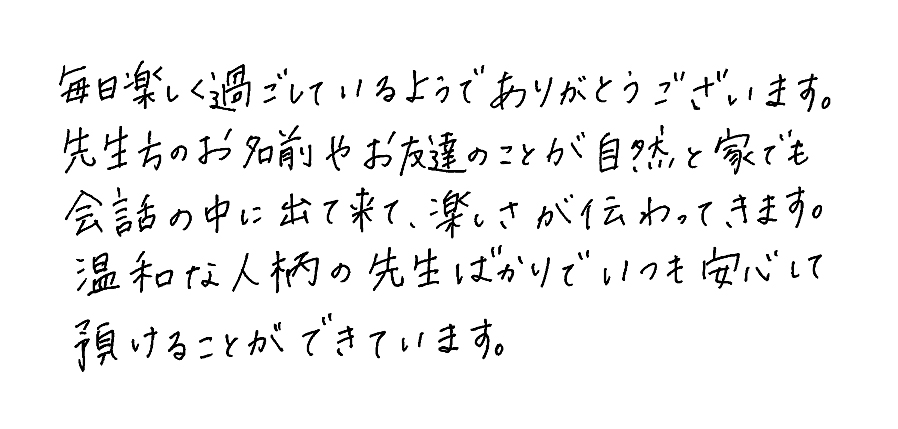 毎日楽しく過ごしているようでありがとうございます。
先生方のお名前やお友達のことが自然と家でも
会話の中に出て来て、楽しさが伝わってきます。
温和な人柄の先生ばかりでいつも安心して
預けることができています。